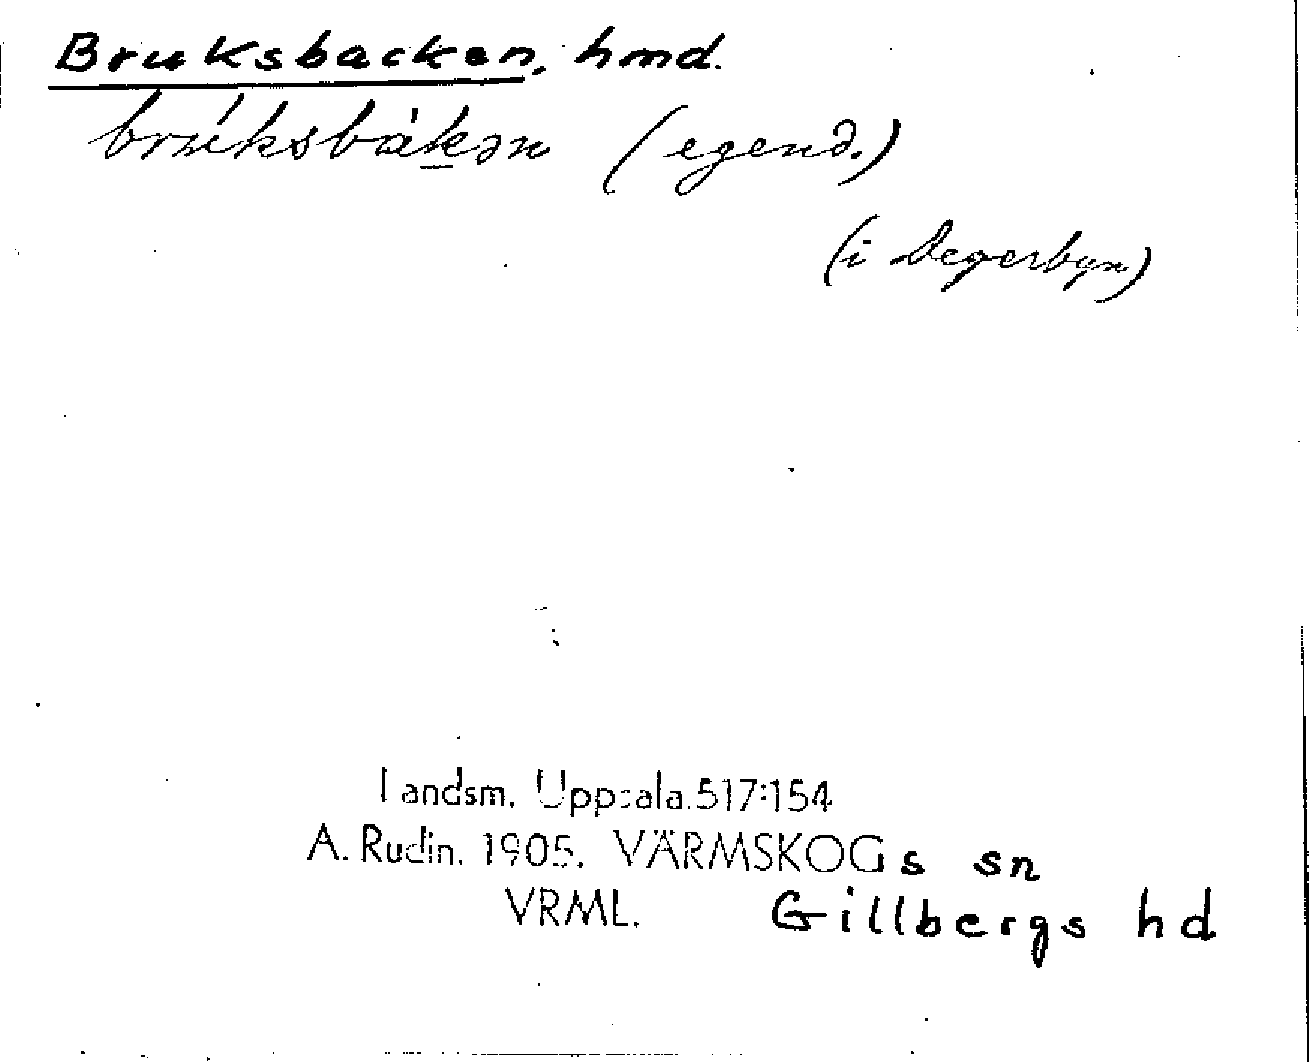 Bruksbacken, hmd.
brúksbákən (egend.)
(i Degerbyn)
Landsm. Uppsala.517:154
A. Rudin. 1905. VÄRMSKOGs sn
VRML. Gillbergs hd